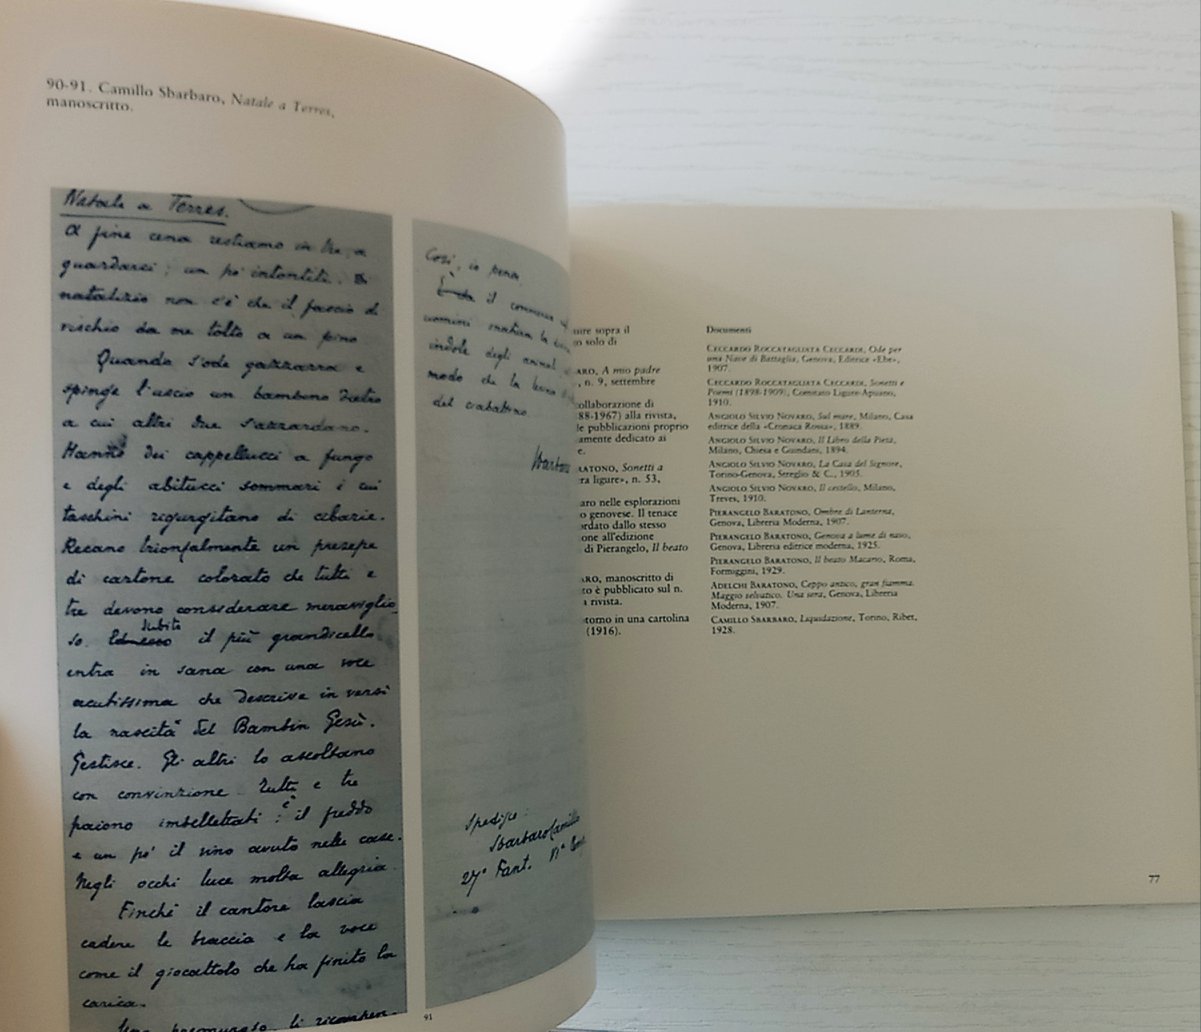 90-91. Camillo Sbarbaro, Natale a Terres,
manoscritto.
Natale a Terres.
A fine cena restiamo in tre a
guardarci; un po' intontiti. Di
natalizio non c'è che il fascio di
vischio da me tolto a un pino
Quando s'ode gazzarra e
spinge l'uscio un bambino dietro
a cui altri due s'azzardano.
Hanno dei cappellucci a fungo
e degli abitucci sommari i cui
taschini rigurgitano di cibarie.
Recano trionfalmente un presepe
di cartone colorato che tutti e
tre devono considerare meraviglio
subito
so. il più grandicello
entra in scena con una voce
acutissima che descrive in versi
la nascita del Bambin Gesù.
Gestisce. Gli altri lo ascoltano
con convinzione. Tutti e tre
paiono imbellettati: è il freddo
e un po' il vino avuto nelle case.
Negli occhi luce molta allegria.
Finchè il cantore lascia
cadere le braccia e la voce
come il giocattolo che ha finito la
carica.
premuroso li ricompen-
Così, io penso
il
uomini
indole degli animal
modo che la
del ciabattino.
Sbarbaro
Spedisce:
Sbarbaro Camillo
27° Fant.
91
uire sopra il
o solo di
ARO, A mio padre
, n. 9, settembre
collaborazione di
88-1967) alla rivista,
le pubblicazioni proprio
amente dedicato ai
e.
RATONO, Sonetti a
ra ligure», n. 53,
aro nelle esplorazioni
o genovese. Il tenace
ordato dallo stesso
one all'edizione
di Pierangelo, Il beato
ARO, manoscritto di
to è pubblicato sul n.
a rivista.
torno in una cartolina
(1916).
Documenti
CECCARDO ROCCATAGLIATA CECCARDI, Ode per
una Nave di Battaglia, Genova, Editrice «Ebe»,
1907.
CECCARDO ROCCATAGLIATA CECCARDI, Sonetti e
Poemi (1898-1909), Comitato Ligure-Apuano,
1910.
ANGIOLO SILVIO NOVARO, Sul mare, Milano, Casa
editrice della «Cronaca Rossa», 1889.
ANGIOLO SILVIO NOVARO, Il Libro della Pietà,
Milano, Chiesa e Guindani, 1894.
ANGIOLO SILVIO NOVARO, La Casa del Signore,
Torino-Genova, Sereglio & C., 1905.
ANGIOLO SILVIO NOVARO, Il cestello, Milano,
Treves, 1910.
PIERANGELO BARATONO, Ombre di Lanterna,
Genova, Libreria Moderna, 1907.
PIERANGELO BARATONO, Genova a lume di naso,
Genova, Libreria editrice moderna, 1925.
PIERANGELO BARATONO, Il beato Macario, Roma,
Formiggini, 1929.
ADELCHI BARATONO, Ceppo antico, gran fiamma.
Maggio selvatico. Una sera, Genova, Libreria
Moderna, 1907.
CAMILLO SBARBARO, Liquidazione, Torino, Ribet,
1928.
77